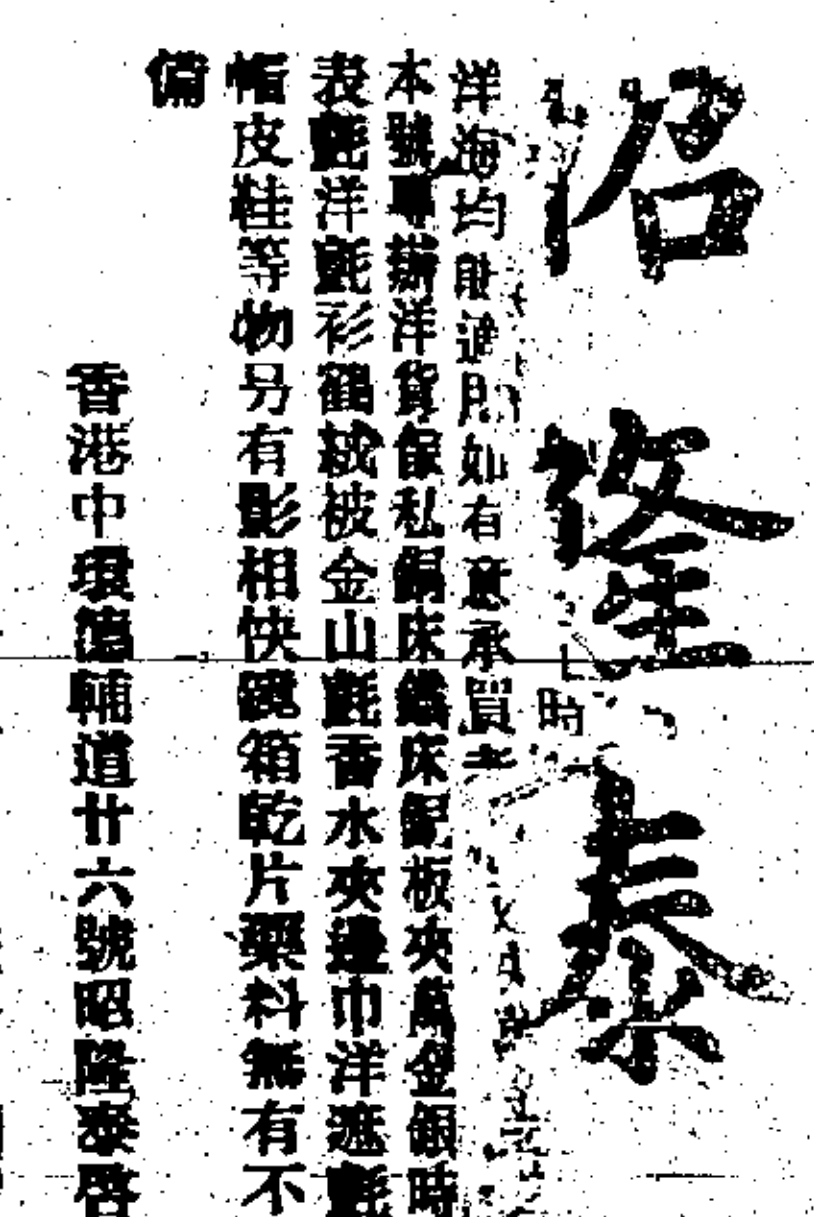 昭隆泰
時
洋海均
如有意承買
本號專辦洋貨傢私銅床鐵床
板夾萬金銀時
表氈洋氈衫鶴絨被金山氈香水夾邊巾洋遮氈
帽皮鞋等物另有影相快鏡箱乾片藥料無有不
備
香港中環德輔道廿六號昭隆泰啓